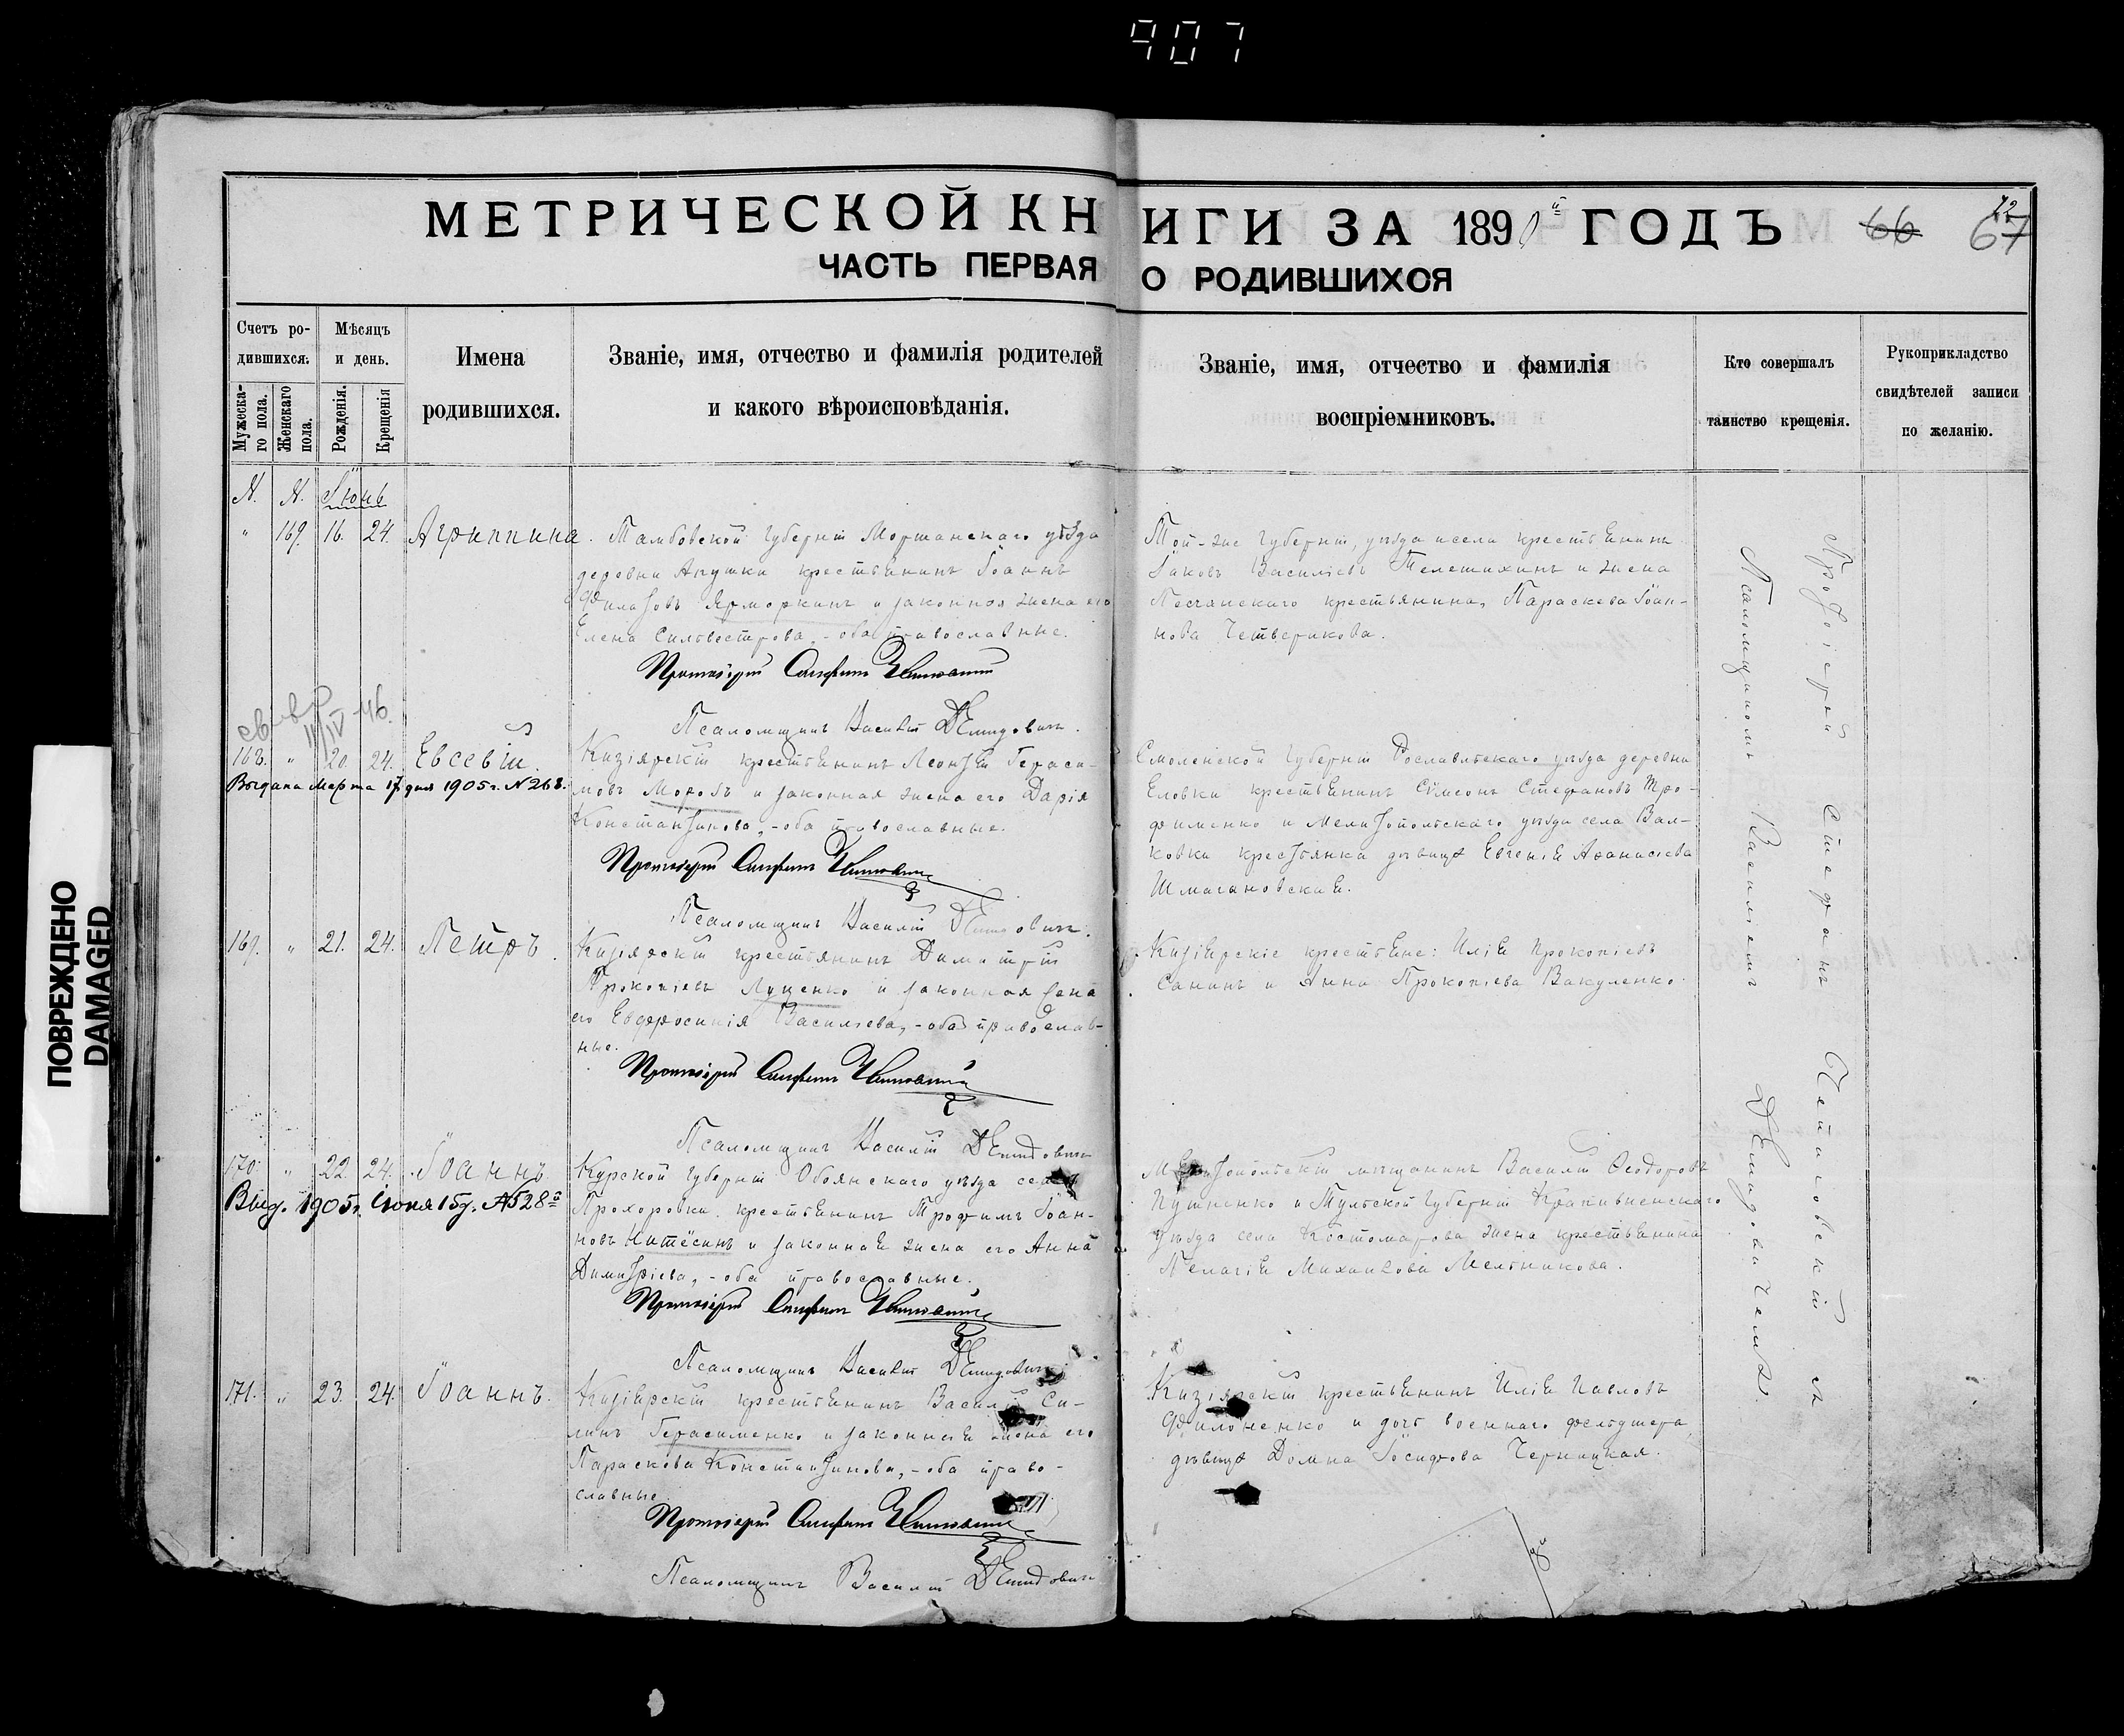 907
ПОВРЕЖДЕНО
DAMAGED
МЕТРИЧЕСКОЙ КНИГИ ЗА 1890й ГОДЪ
66 67
72
ЧАСТЬ ПЕРВАЯ О РОДИВШИХСЯ
Счетъ родившихся.
Мужескаго пола.
Женскаго пола.
Мѣсяцъ и день.
Рожденія.
Крещенія
Имена родившихся.
Званіе, имя, отчество и фамилія родителей
и какого вѣроисповѣданія.
Званіе, имя, отчество и фамилія
воспріемниковъ.
Кто совершалъ
таинство крещенія.
Рукоприкладство
свидѣтелей записи
по желанію.
N. N. Іюнь
" 169. 16. 24. Агриппина.
Тамбовской Губерніи Моршанскаго уѣзда
деревни Апушки крестьянинъ Іоаннъ
Филатовъ Ярморкинъ и законная жена его
Елена Силвестрова, - оба православные.
Протоіерей
Псаломщикъ Василій Демидовичъ.
Той-же Губерніи, уѣзда и села крестьянинъ
Іаковъ Василіевъ Телешихинъ и жена
Песчанскаго крестьянина, Параскева Іоан-
нова Четверикова.
IV-46.
168. " 20. 24. Евсевій.
Выдана Марта 17 дня 1905 г. N 268.
Кизіярскій крестьянинъ Леонтій Гераси-
мовъ Морозъ и законная жена его Дарія
Константинова, - оба православные.
Протоіерей
Псаломщикъ Василій Демидовичъ.
Смоленской Губерніи Рославльскаго уѣзда деревни
Еловки крестьянинъ Сѵмеонъ Стефановъ Тро-
фименко и Мелитопольскаго уѣзда села Вал-
ковки крестьянка дѣвица Евгенія Аѳанасіева
Шмагановская.
169. " 21. 24. Петръ.
Кизіярскій крестьянинъ Димитрій
Прокопіевъ Луценко и законная жена
его Евфросинія Василіева, - оба православ-
ные.
Протоіерей
Псаломщикъ Василій Демидовичъ
Кизіярскіе крестьяне: Илія Прокопіевъ
Санинъ и Анна Прокопіева Вакуленко.
170. " 22. 24. Іоаннъ
Выд. 1905 г. Іюня 15 д. № 528й
Курской Губерніи Обоянскаго уѣзда села
Прохоровки крестьянинъ Трофимъ Іоан-
новъ и законная жена его Анна
Димитріева, - оба православные.
Протоіерей
Псаломщикъ Василій Демидовичъ
Мелитопольскій мѣщанинъ Василій Ѳеодоровъ
и Тульской Губерніи Крапивненскаго
уѣзда села Костомарова жена крестьянина
Пелагія Михаилова Мельникова.
171. " 23. 24. Іоаннъ.
Кизіярскій крестьянинъ Василій Си-
линъ Герасименко и законная жена его
Параскева Константинова, - оба право-
славные
Протоіерей
Псаломщикъ Василій Демидовичъ
Кизіярскій крестьянинъ Илія Павловъ
Филоненко и дочь военнаго фельдшера
дѣвица Домна Іосифова Черницкая.
Протоіерей Стефанъ съ
Псаломщикомъ Василіемъ Демидовичемъ.